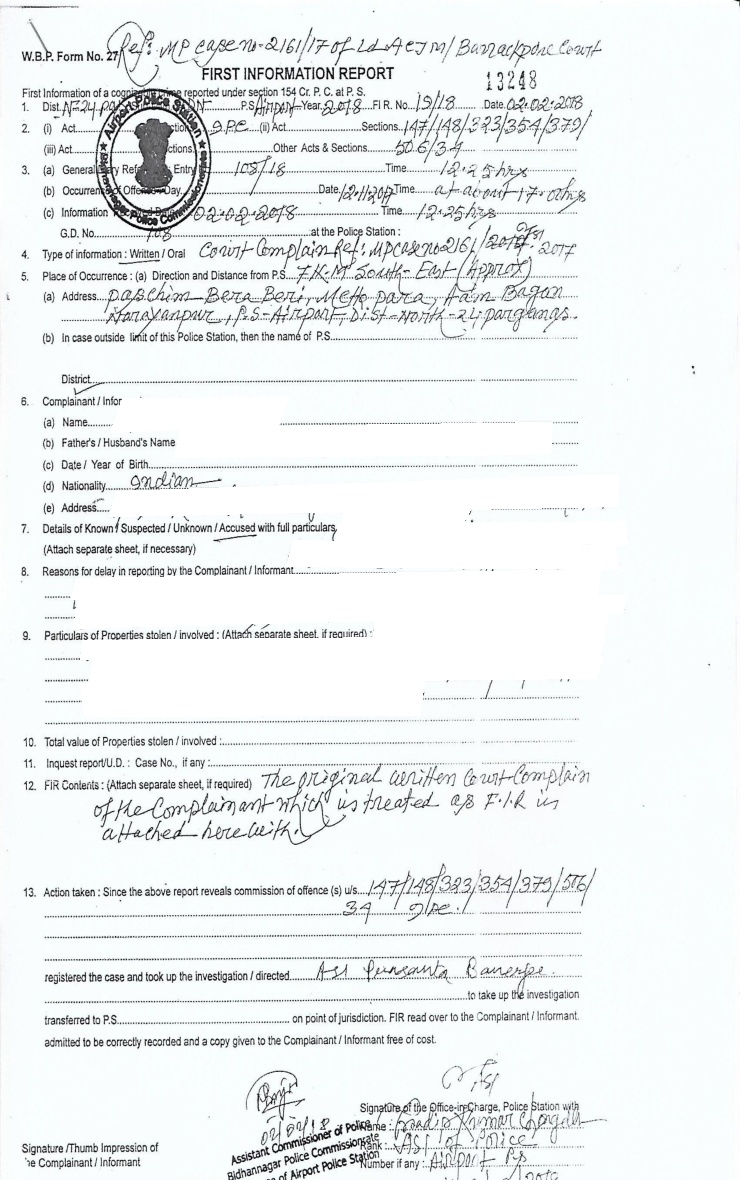 Ref: MP case no-2161/17 of Ld ACJM/ Barrackpore Court
W.B.P. Form No. 27
FIRST INFORMATION REPORT
13248
First Information of a cognizable crime reported under section 154 Cr. P. C. at P. S.
1. Dist. P.S Airport Year 2018 FI R. No. 19/18 Date 02.02.2018
2. (i) Act Sections IPC (ii) Act Sections 147/148/323/354/379/
(iii) Act Sections Other Acts & Sections 506/34
3. (a) General Diary Reference Entry 108/18 Time 12.25 hrs
(b) Occurrence of Offence Day Date 12/11/2017 Time at about 17.0 hrs
(c) Information 02.02.2018 Time 12.25 hrs
G.D. No. 108 at the Police Station :
4. Type of information : Written / Oral Court Complain Ref: MP case no 2161/2017
5. Place of Occurrence : (a) Direction and Distance from P.S. 7 K.M South-East (Approx)
(a) Address Paschim Bera Beri, Metho para, Aam Bagan
Narayanpur, P.S-Airport, Dist-North-24 parganas.
(b) In case outside limit of this Police Station, then the name of P.S.
District
6. Complainant / Infor
(a) Name
(b) Father's / Husband's Name
(c) Date / Year of Birth
(d) Nationality Indian
(e) Address
7. Details of Known / Suspected / Unknown / Accused with full particulars
(Attach separate sheet, if necessary)
8. Reasons for delay in reporting by the Complainant / Informant
9. Particulars of Properties stolen / involved : (Attach separate sheet. if required) :
10. Total value of Properties stolen / involved :
11. Inquest report/U.D. : Case No., if any :
12. FIR Contents : (Attach separate sheet, if required) The original written Court Complain
of the Complainant which is treated as F.I.R is
attached herewith.
13. Action taken : Since the above report reveals commission of offence (s) u/s 147/148/323/354/379/506/
34 IPC.
registered the case and took up the investigation / directed ASI Banerjee.
to take up the investigation
transferred to P.S. on point of jurisdiction. FIR read over to the Complainant / Informant.
admitted to be correctly recorded and a copy given to the Complainant / Informant free of cost.
Signature of the Office-in-Charge, Police Station with
02/02/18
Name : Kumar
Assistant Commissioner of Police
Rank : ASI of Police
Bidhannagar Police Commissionerate
Number if any : Airport PS
of Airport Police Station
Signature /Thumb Impression of
he Complainant / Informant